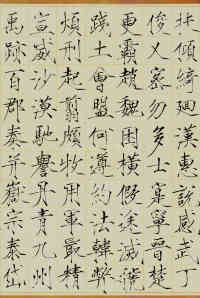 扶傾綺廻漢惠說感武丁
俊乂密勿多士寔寧晉楚
更霸趙魏困橫假途滅虢
踐土會盟何遵約法韓弊
煩刑起翦頗牧用軍最精
宣威沙漠馳譽丹青九州
禹跡百郡秦并嶽宗泰岱